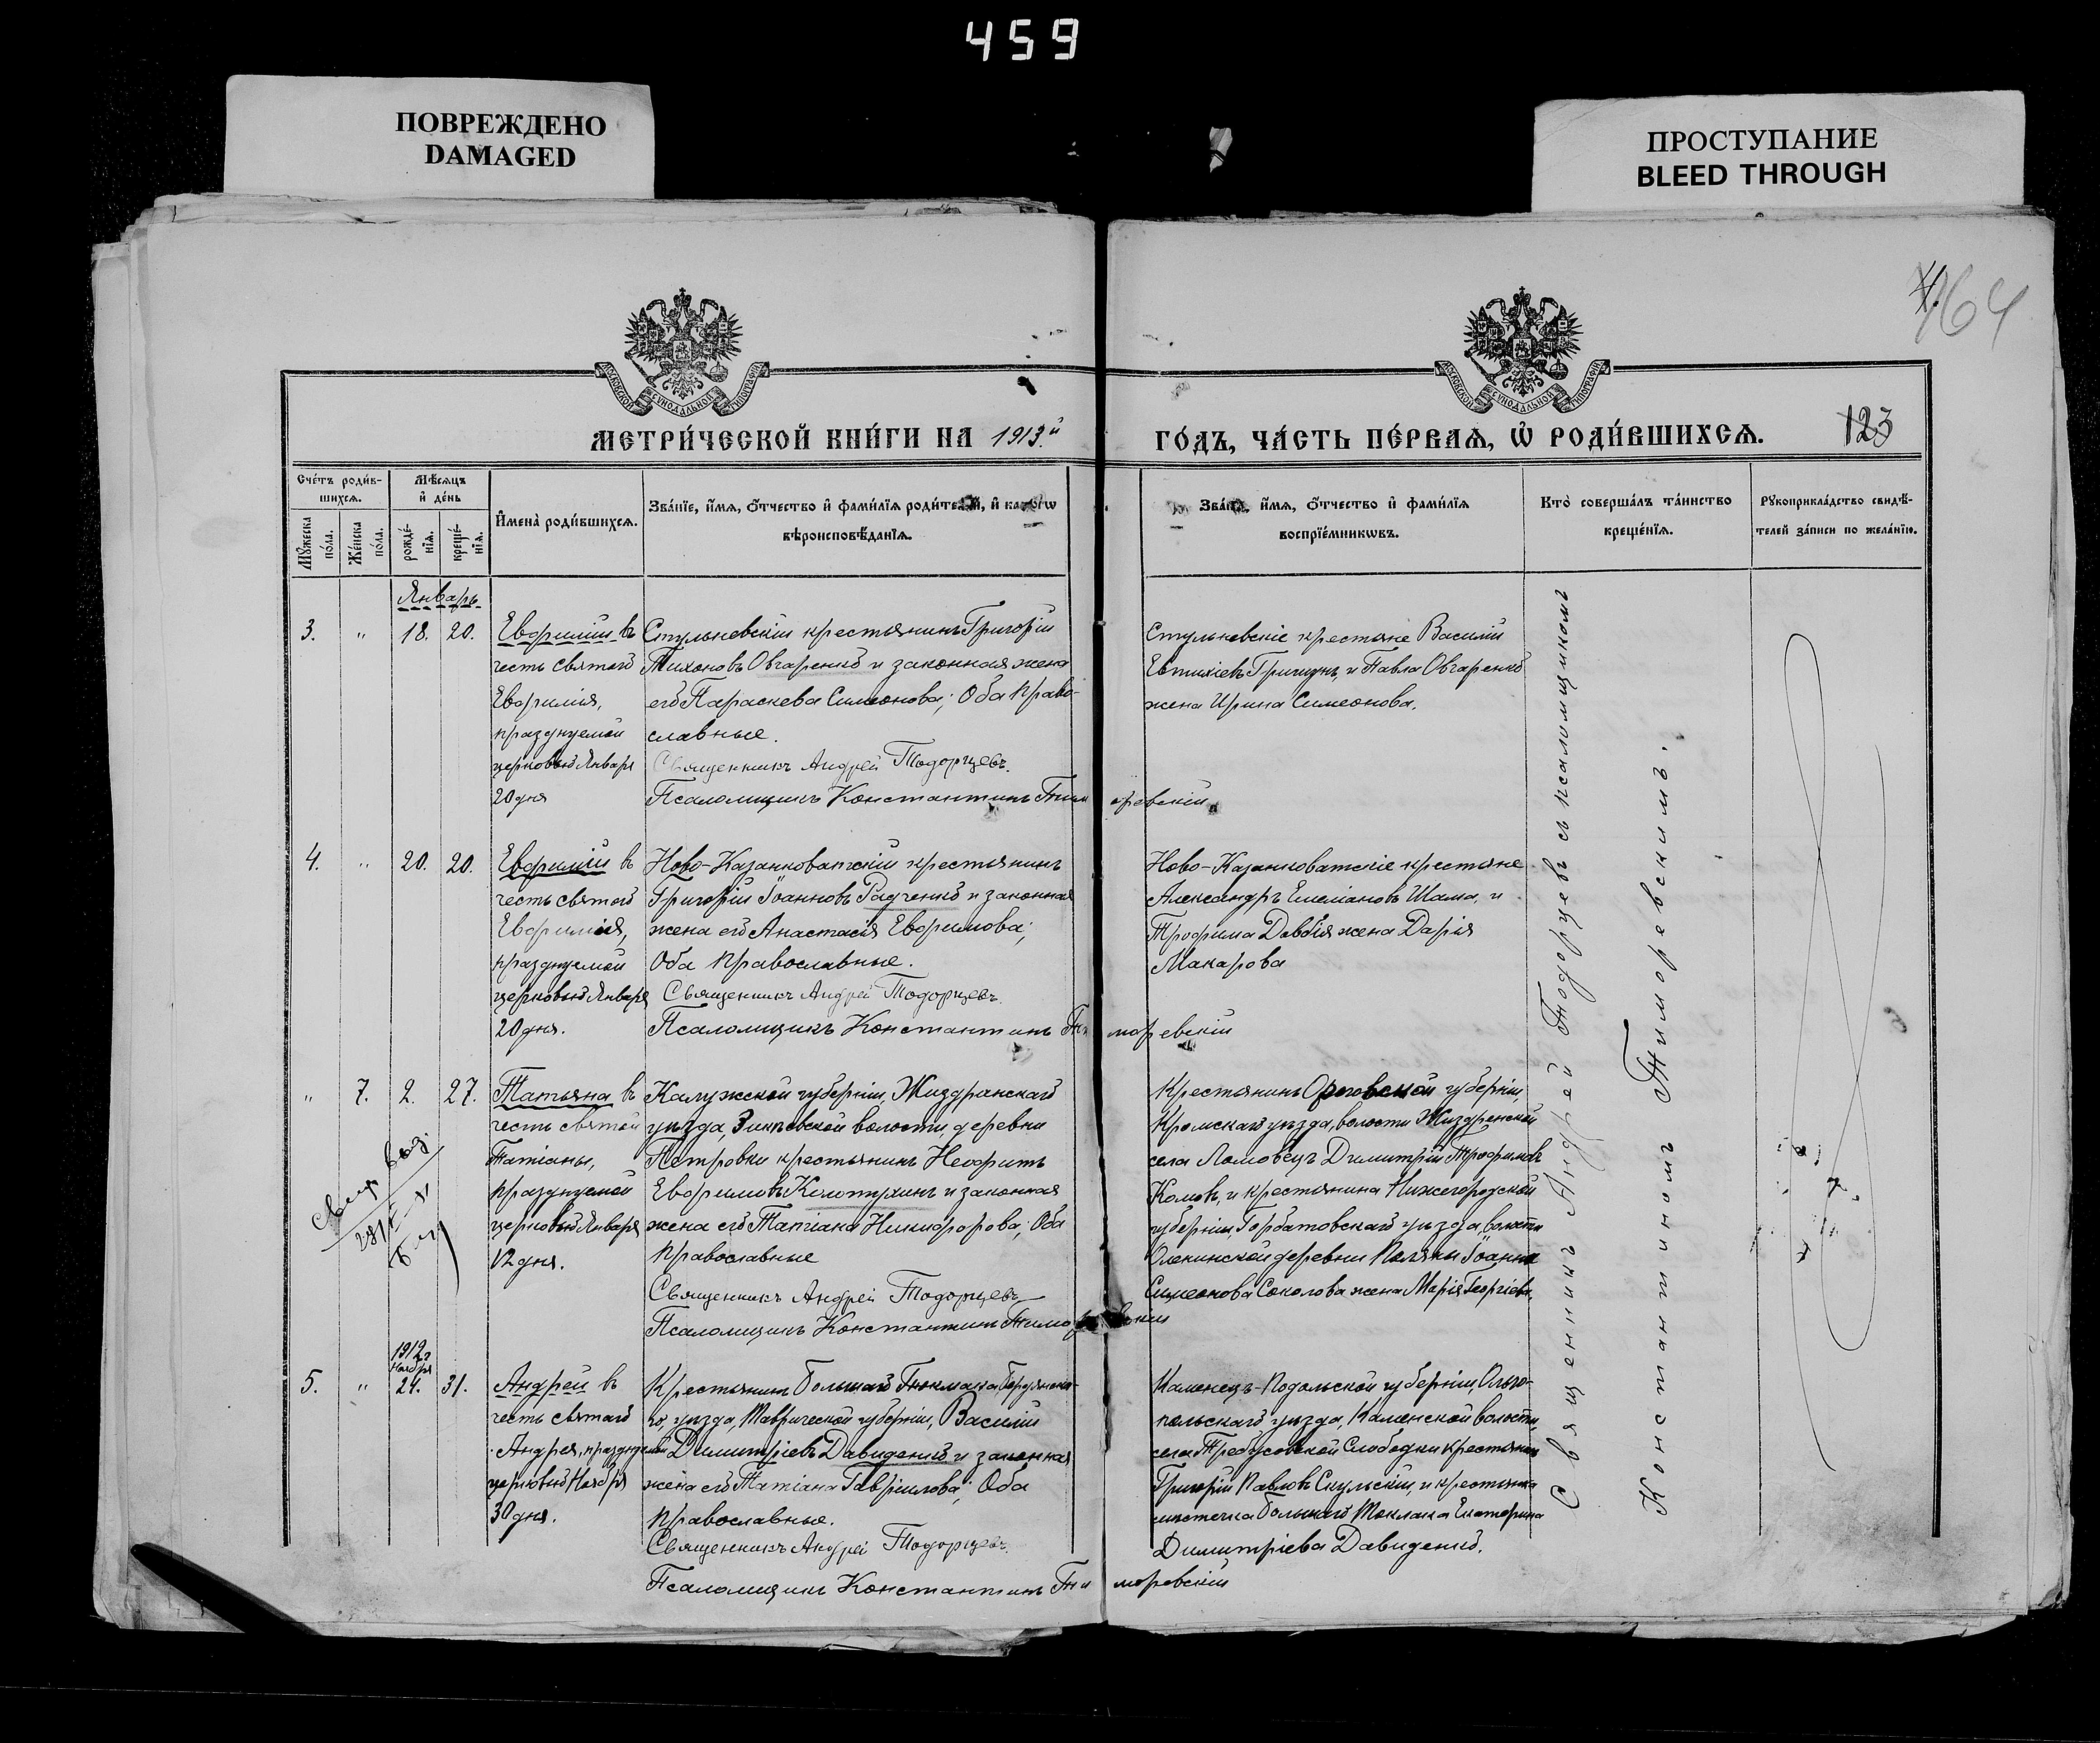 459
ПОВРЕЖДЕНО
DAMAGED
ПРОСТУПАНИЕ
BLEED THROUGH
164
МЕТРИ́ЧЕСКОЙ КНИ́ГИ НА 1913.й
ГО́ДЪ, ЧА́СТЬ ПЕ́РВАѦ, Ѡ РОДИ́ВШИХСѦ.
123
Сче́тъ роди́в-
шихся.
Мѣ́сяцъ
и де́нь
Мꙋ́жеска по́ла.
Же́нска по́ла.
рожде́-нїя.
креще́-нїя.
И҆мена̀ роди́вшихся.
Зва́нїе, и҆́мя, ѻ҆́тчество и҆ фами́лїя роди́телей, и҆ како́гѡ
вѣроисповѣ́данїя.
Зва́нїе, и҆́мя, ѻ҆́тчество и҆ фами́лїя
воспрїе́мникѡвъ.
Кто̀ соверша́лъ та́инство
креще́нїя.
Рꙋкоприкла́дство свидѣ́-
телей за́писи по жела́нїю.
Январь
3. " 18. 20.
Евфимій въ
честь святого
Евфимія,
празднуемой
церковью Января
20 дня
Стульневскій крестьянинъ Григорій
Тихоновъ Овчаренко и законная жена
его Параскева Симеонова; Оба право-
славные.
Священникъ Андрей Тодорцевъ.
Псаломщикъ Константинъ Тиморевскій
Стульневскіе крестьяне Василій
Евтихіевъ Гришунъ, и Павла Овчаренко
жена Ирина Симеонова.
4. " 20. 20.
Евфимій въ
честь святого
Евфимія,
празднуемой
церковью Января
20 дня.
Ново-Казанковатскій крестьянинъ
Григорій Іоанновъ Радченко и законная
жена его Анастасія Евфимова;
Оба Православные.
Священникъ Андрей Тодорцевъ.
Псаломщикъ Константинъ Тиморевскій
Ново-Казанковатскіе крестьяне
Александръ Емеліановъ Шама, и
Трофима Довбія жена Дарія
Макарова
" 7. 2. 27.
Татьяна въ
честь святой
Татіаны,
празднуемой
церковью Января
12 дня.
Калужской губерніи, Жиздранскаго
уезда, волости, деревни
Петровки крестьянинъ Неофитъ
Евфимовъ Колотухинъ и законная
жена его Татіана Никифорова; Оба
Православные
Священникъ Андрей Тодорцевъ
Псаломщикъ Константинъ Тиморевскій
Крестьянинъ Орловской губерніи,
Кромскаго уезда, волости
села Ломовецъ Димитрій Трофимовъ
Комовъ, и крестьянина Нижегородской
губерніи, Горбатовскаго уезда, волости
деревни Поляны Іоанна
Симеонова Соколова жена Марія Георгіева.
5. "
1912г
Ноября
24. 31.
Андрей въ
честь святаго
Андрея, празднуемой
церковью Ноября
30 дня.
Крестьянинъ Большаго Токмака, Бердянска-
го уезда, Таврической губерніи, Василій
Димитріевъ Давиденко и законная
жена его Татіана Гавріилова; Оба
Православные.
Священникъ Андрей Тодорцевъ.
Псаломщикъ Константинъ Тиморевскій
Каменецъ-Подольской губерніи, Ольго-
польскаго уезда, Каменской волости,
села Слободки крестьянинъ
Григорій Павловъ Скульскій, и крестьянка
местечка Большаго Токмака Екатерина
Димитріева Давиденко.
Священникъ Андрей Тодорцевъ съ псаломщикомъ
Константиномъ Тиморевскимъ.